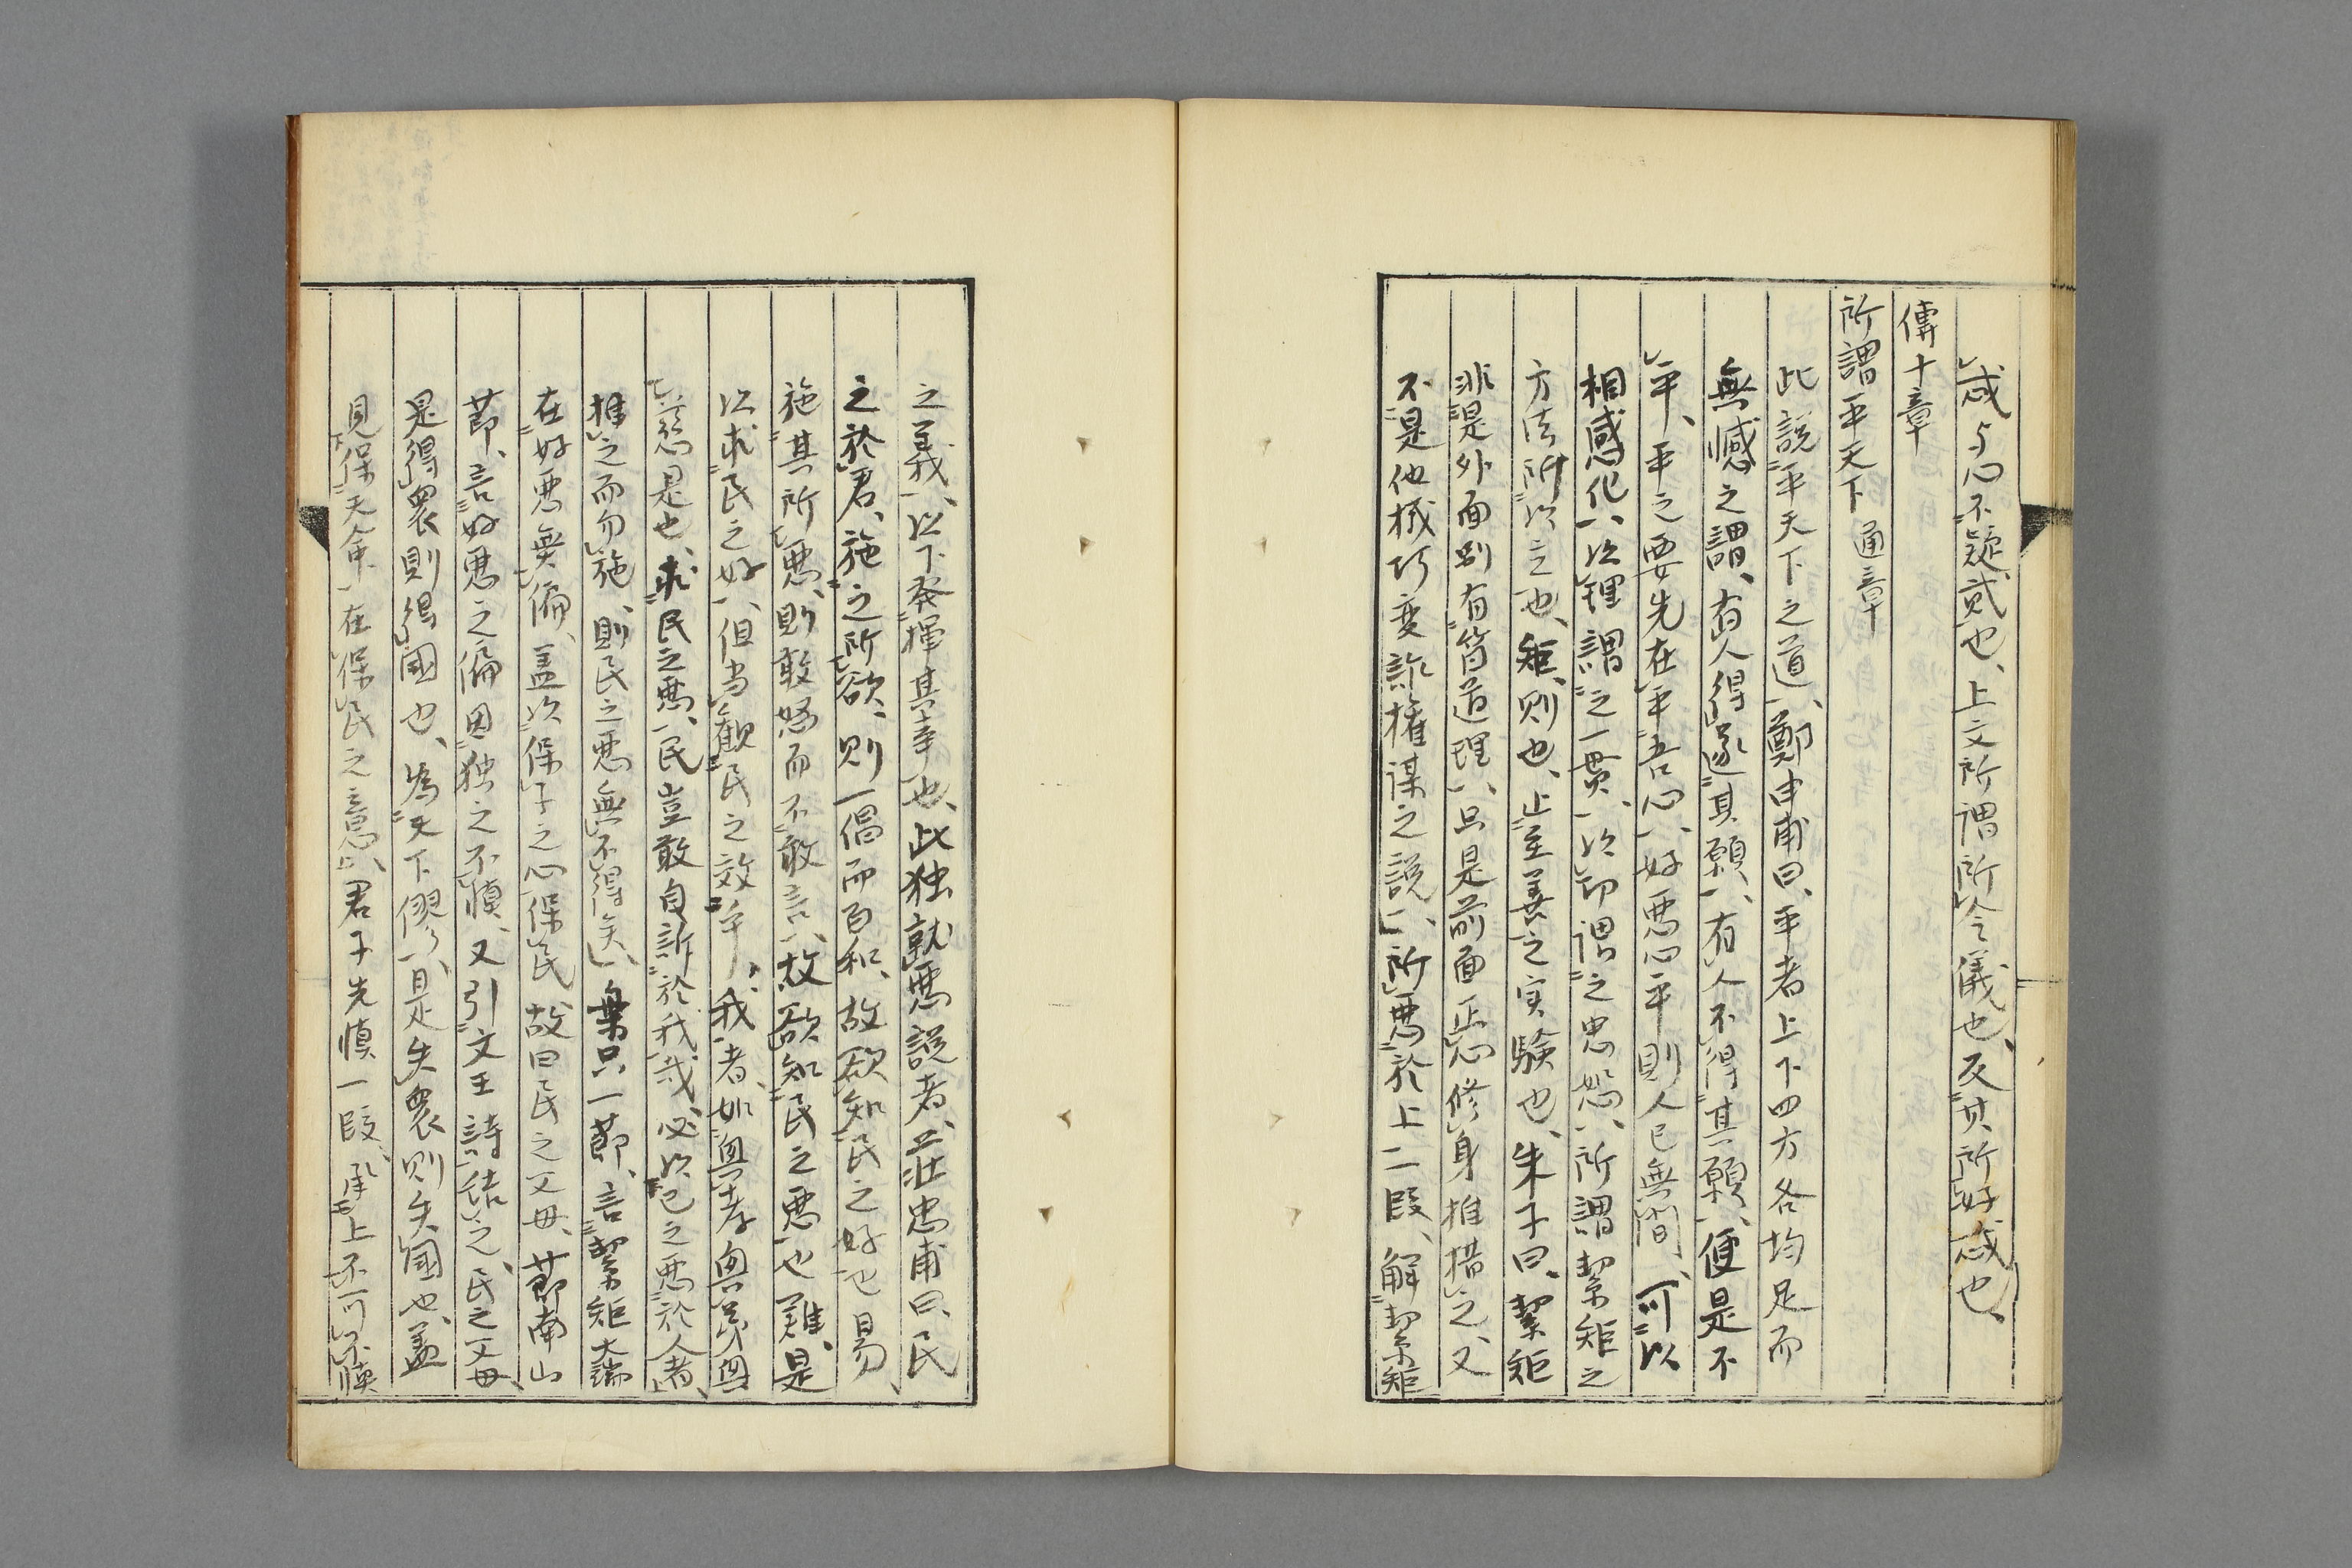 忒与心不疑貳也、上文所謂所令儀也、反其所好忒也、
傳十章
所謂平天下 通章
此說平天下之道、鄭申甫曰、平者上下四方各均足而
無憾之謂、有人得遂其願、有人不得其願、便是不
平、平之要先在平吾心、好悪心平則人己無間、可以
相感化、以理謂之一貫、以功謂之忠恕、所謂絜矩之
方法所以之也、矩、則也、止至善之実驗也、朱子曰、絜矩
非是外面別有箇道理、只是前面正心修身推措之、又
不是他機巧変詐權謀之說、所悪於上二段、解絜矩
之義、以下発揮其章也、此独就悪說者、荘忠甫曰、民
之於君、施之所欲、則一倡而百和、故欲知民之好也易、
施其所悪、則敢怒而不敢言、故欲知民之悪也難、是
以求民之好、但当観民之效乎我者、如興孝興弟、興
慈是也、求民之悪、民豈敢自訴於我哉、必以己之悪於人者、
推之而勿施、則民之悪無不得矣、楽只一節、言絜矩大端
在好悪無偏、蓋以保子之心保民故曰民之父母、節南山
節、言好悪之偏因独之不慎、又引文王詩結之、民之父母、
是得衆則得國也、為天下僇、是失衆則失國也、蓋
見保天命、在保民之意、君子先慎一段、承上不可不慎